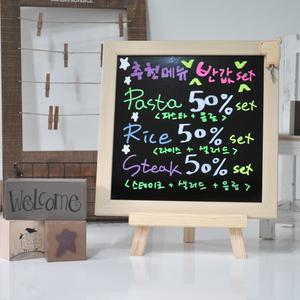 추천메뉴 반값 set
Pasta 50% set
<파스타 + 음료>
Rice 50% set
<라이스 + 샐러드>
Steak 50% set
<스테이크 + 샐러드 + 음료>
Welcome